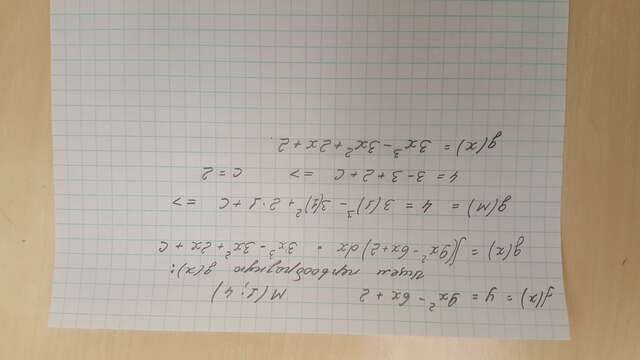 f(x) = y = 9x² - 6x + 2 M(1; 4)
Ищем первообразную g(x):
g(x) = ∫(9x² - 6x + 2)dx = 3x³ - 3x² + 2x + C
g(M) = 4 = 3(1)³ - 3(1)² + 2·1 + C =>
4 = 3 - 3 + 2 + C => C = 2
g(x) = 3x³ - 3x² + 2x + 2.